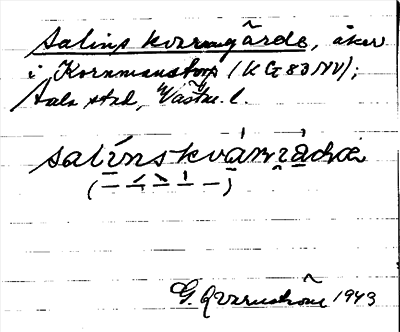 Salins kvarngärde, åker
i Kornmanstorp (KG 83 NV);
Sala stad, Västm. l.
salinskvànɹàdɘ
G. Qvarnström 1943